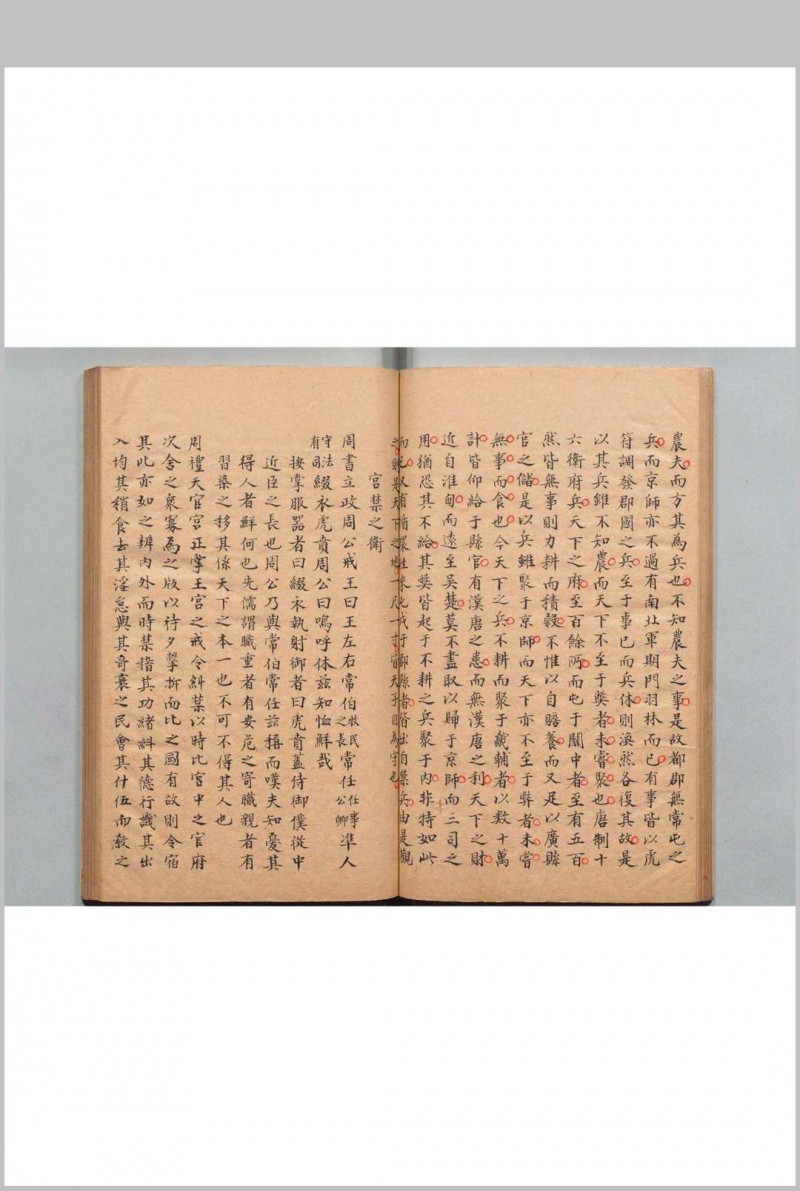 農夫而方其為兵也不知農夫之事是故郡郡無常屯之
兵而京師亦不過有南北軍期門羽林而已有事皆以虎
符調發郡國之兵至于事已而兵休則渙然各復其故是
以其兵雖不知農而天下不至于獘者未嘗聚也唐制十
六衛府兵天下之府至百餘所而屯于關中者至有五百
然皆無事則力耕而積穀不惟以自贍養而又足以廣縣
官之儲是以兵雖聚于京師而天下亦不至于弊者未嘗
無事而食也今天下之兵不耕而聚于畿輔者以数十萬
計皆仰給于縣官有漢唐之患而無漢唐之利天下之財
近自淮甸而遠至吳楚莫不盡取以歸于京師而三司之
用猶恐其不給其獘皆起于不耕之兵聚于內非特如此
而已
兵由是觀
之天下之地一尺一寸皆天子自為守也
宮禁之衛
周書立政周公戒王曰王左右常伯牧民之長常任任事公卿準人
守法有司綴衣虎賁周公曰嗚呼休兹知恤鮮哉
按掌服器者曰綴衣執射御者曰虎賁蓋侍御僕從中
近臣之長也周公乃與常伯常任並稱而嘆夫知憂其
得人者鮮何也先儒謂職重者有安危之寄職親者有
習染之移其係天下之本一也不可不得其人也
周禮天官宮正掌王宮之戒令糾禁以時比宮中之官府
次舍之衆寡為之版以待夕擊柝而比之國有故則令宿
其比亦如之辨內外而時禁稽其功緒糾其德行譏其出
入均其稍食去其淫怠與其奇衺之民會其什伍而敎之